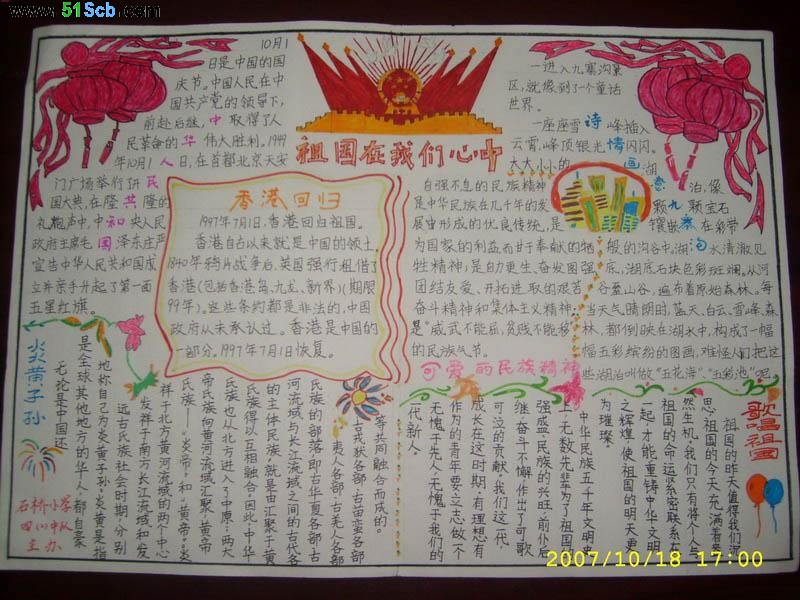 www.51Scb.com
祖国在我们心中
10月1
日是中国的国
庆节。中国人民在中
国共产党的领导下,
前赴后继,取得了人
民革命的伟大胜利。1949
年10月1日,在首都北京天安
门广场举行开
国大典,在隆隆的
礼炮声中,中央人民
政府主席毛泽东庄严
宣告中华人民共和国成
立并亲手升起了第一面
五星红旗。
中华人民共和国
香港回归
1997年7月1日,香港回归祖国。
香港自古以来就是中国的领土,
1840年鸦片战争后,英国强行租借了
香港(包括香港岛、九龙、新界)(期限
99年)。这些条约都是非法的,中国
政府从未承认过。香港是中国的
一部分。1997年7月1日恢复。
自强不息的民族精神
是中华民族在几千年的发
展宙形成的优良传统,是
为国家的利益而甘于奉献的牺
牲精神;是自力更生、奋发图强
团结友爱、开拓进取的艰苦
奋斗精神和集体主义精神;
是"威武不能屈,贫贱不能移"
的民族气节。
可爱的民族精神
一进入九寨沟景
区,就像到了个童话
世界。
一座座雪峰插入
云霄,峰顶银光闪闪。
大大小小的湖
泊,像
颗颗宝石
镶嵌在彩带
般的沟谷中。湖水清澈见
底,湖底石块色彩斑斓。从河
谷至山谷,遍布着原始森林。每
当天气晴朗时,蓝天、白云、雪峰、森
林,都倒映在湖水中,构成了一幅
幅五彩缤纷的图画,难怪人们把这
些湖泊叫做"五花海""五彩池"呢。
诗情画意九寨沟
炎黄子孙
无论是中国还
是全球其他地方的华人,都自豪
地称自己为炎黄子孙。炎黄是指
远古氏族社会时期,分别
发祥于南方长江流域和发
祥于北方黄河流域的两个中心
氏族——"炎帝"和"黄帝"。炎
帝氏族向黄河流域汇聚,黄帝
氏族也从北方进入了中原。两大
氏族得以互相融合。因此,中华
的主体民族,就是由汇聚于黄
河流域与长江流域之间的古代各
民族的部落即古华夏各部、古
夷人各部、古羌人各部
古戎狄各部、古苗蛮各部
等共同融合而成的。
石桥小学
四(1)中队
主办
歌唱祖国
祖国的昨天值得我们沉
思,祖国的今天充满着
然生机。我们只有将个人与
祖国的命运紧密联系在
一起,才能重铸中华文明
之辉煌,使祖国的明天更
为璀璨。
中华民族五千年文明史
上,无数先辈为了祖国
强盛、民族的兴旺,前仆后
继,奋斗不懈,作出了可歌
可泣的贡献。我们这一代,
成长在这时期,有理想有
作为的青年要立志做一个
无愧于先人,无愧于我们的
一代新人。
2007/10/18 17:00